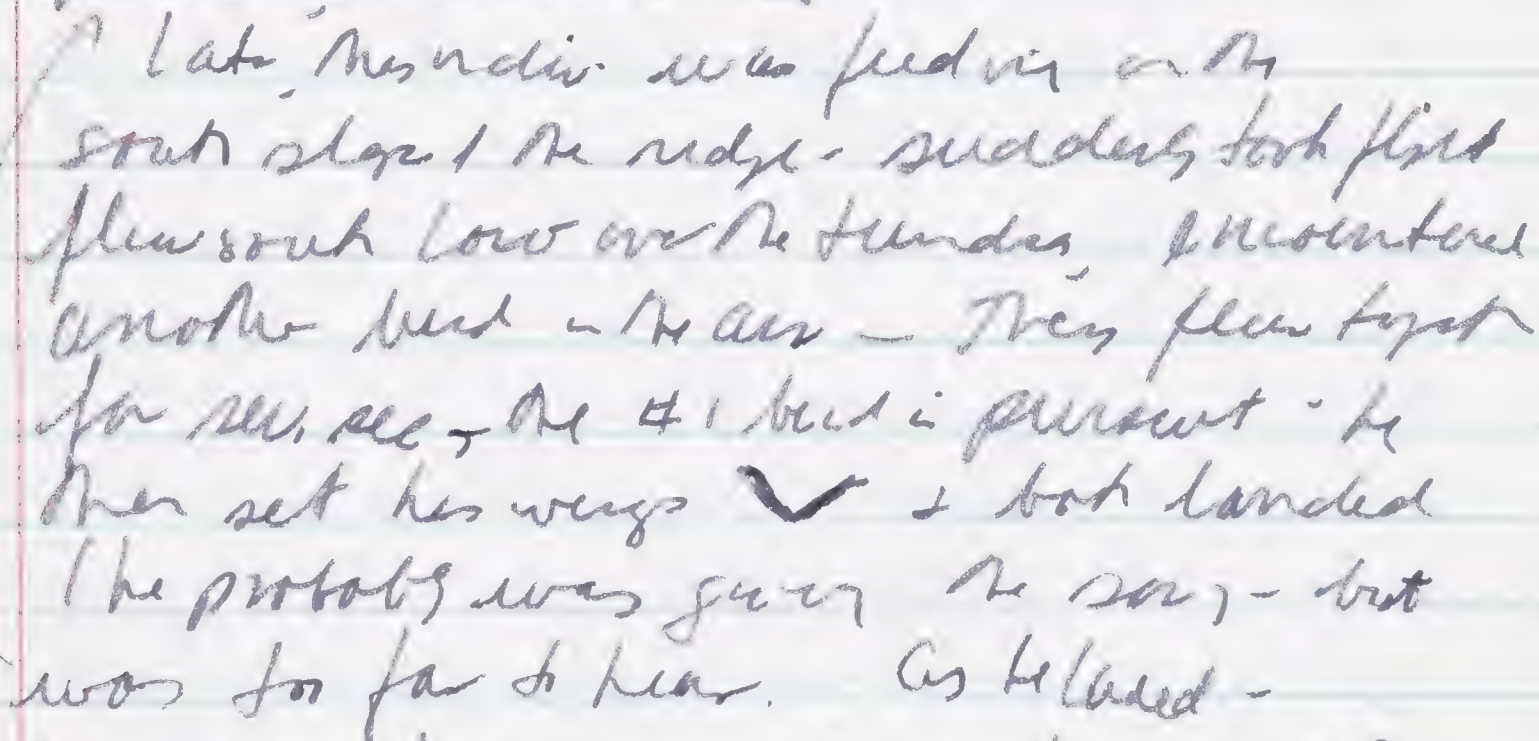 Later this indiv. was feeding on the
south slope of the ridge - suddenly took flight
flew south low over the tundra, encountered
another bird in the air - They flew together
for sev. sec, the #1 bird in pursuit - he
then set his wings & both landed
(he probably was giving the song - but
was too far to hear. As he landed -